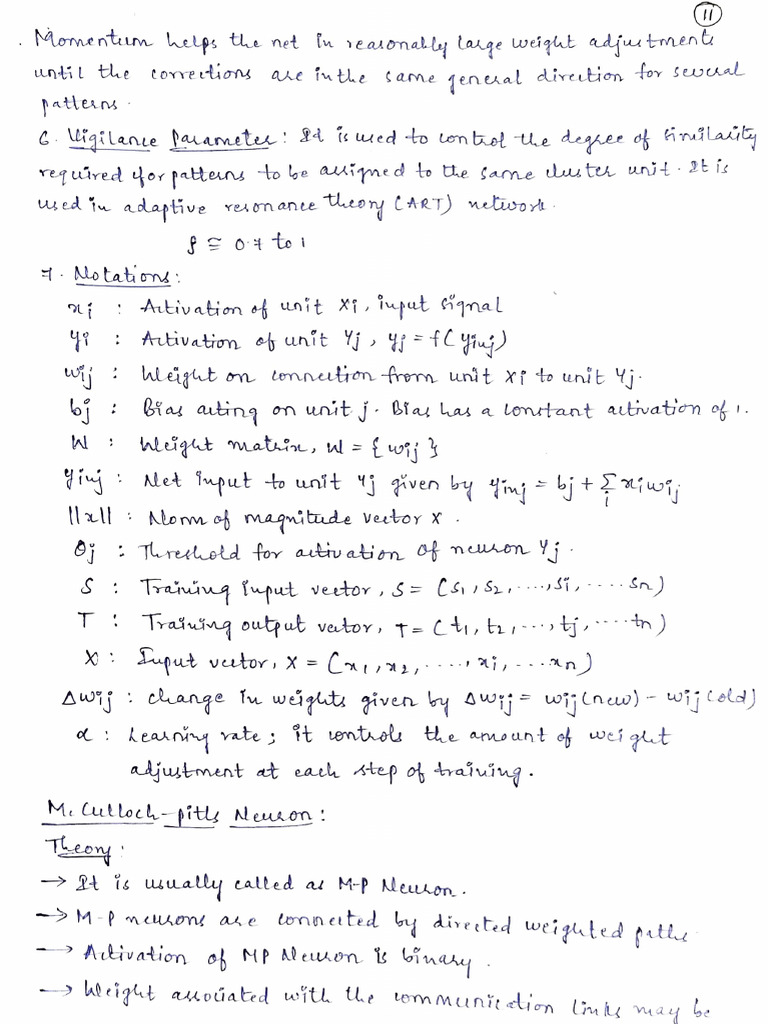 11
. Momentum helps the net in reasonably large weight adjustments
until the corrections are in the same general direction for several
patterns.
6. Vigilance Parameter: It is used to control the degree of similarity
required for patterns to be assigned to the same cluster unit. It is
used in adaptive resonance theory (ART) network.
ρ ≅ 0.7 to 1
7. Notations:
xi : Activation of unit Xi, input signal
yj : Activation of unit Yj, yj = f(yinj)
wij : Weight on connection from unit Xi to unit Yj.
bj : Bias acting on unit j. Bias has a constant activation of 1.
W : Weight matrix, W = {wij}
yinj : Net input to unit Yj given by yinj = bj + Σi xiwij
||x|| : Norm of magnitude vector X.
θj : Threshold for activation of neuron Yj.
S : Training input vector, S = (s1, s2, ...., si, ..... sn)
T : Training output vector, T = (t1, t2, ..., tj, ..... tn)
X : Input vector, X = (x1, x2, ....., xi, ... xn)
Δwij : change in weights given by Δwij = wij(new) - wij(old)
α : Learning rate; it controls the amount of weight
adjustment at each step of training.
Mc Culloch-pitts Neuron:
Theory:
→ It is usually called as M-P Neuron.
→ M-P neurons are connected by directed weighted paths
→ Activation of MP Neuron is binary.
→ Weight associated with the communication links may be